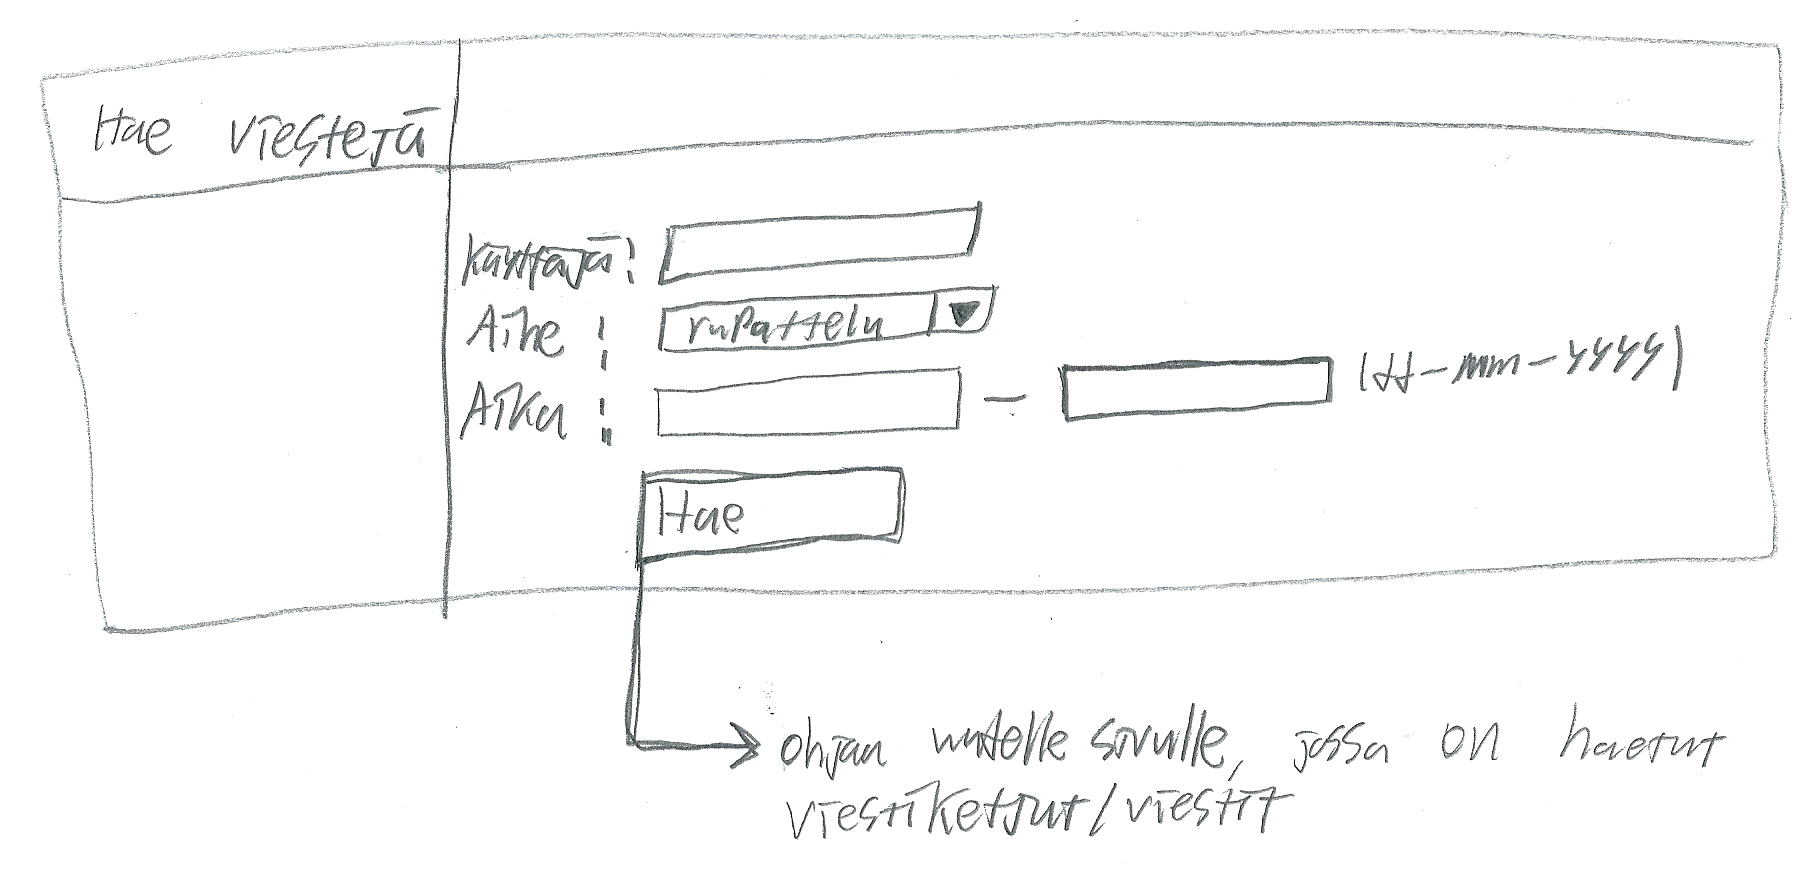 Hae viestejä
käyttäjä:
Aihe : rupattelu
Aika : – (dd-mm-yyyy)
Hae
ohjaa uudelle sivulle, jossa on haetut
viestiketjut/viestit